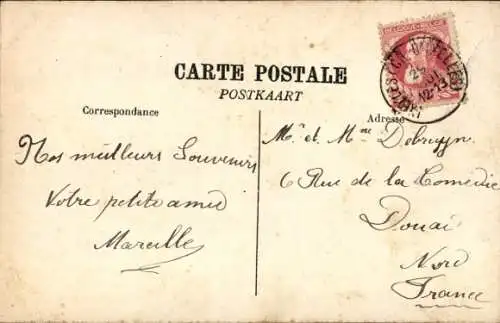 CARTE POSTALE
POSTKAART
Correspondance
Adresse
Mes meilleurs Souvenirs
Votre petite amie
Mareille
Mr et Mme Debruyn
6 Rue de la Comédie
Douai
Nord
France